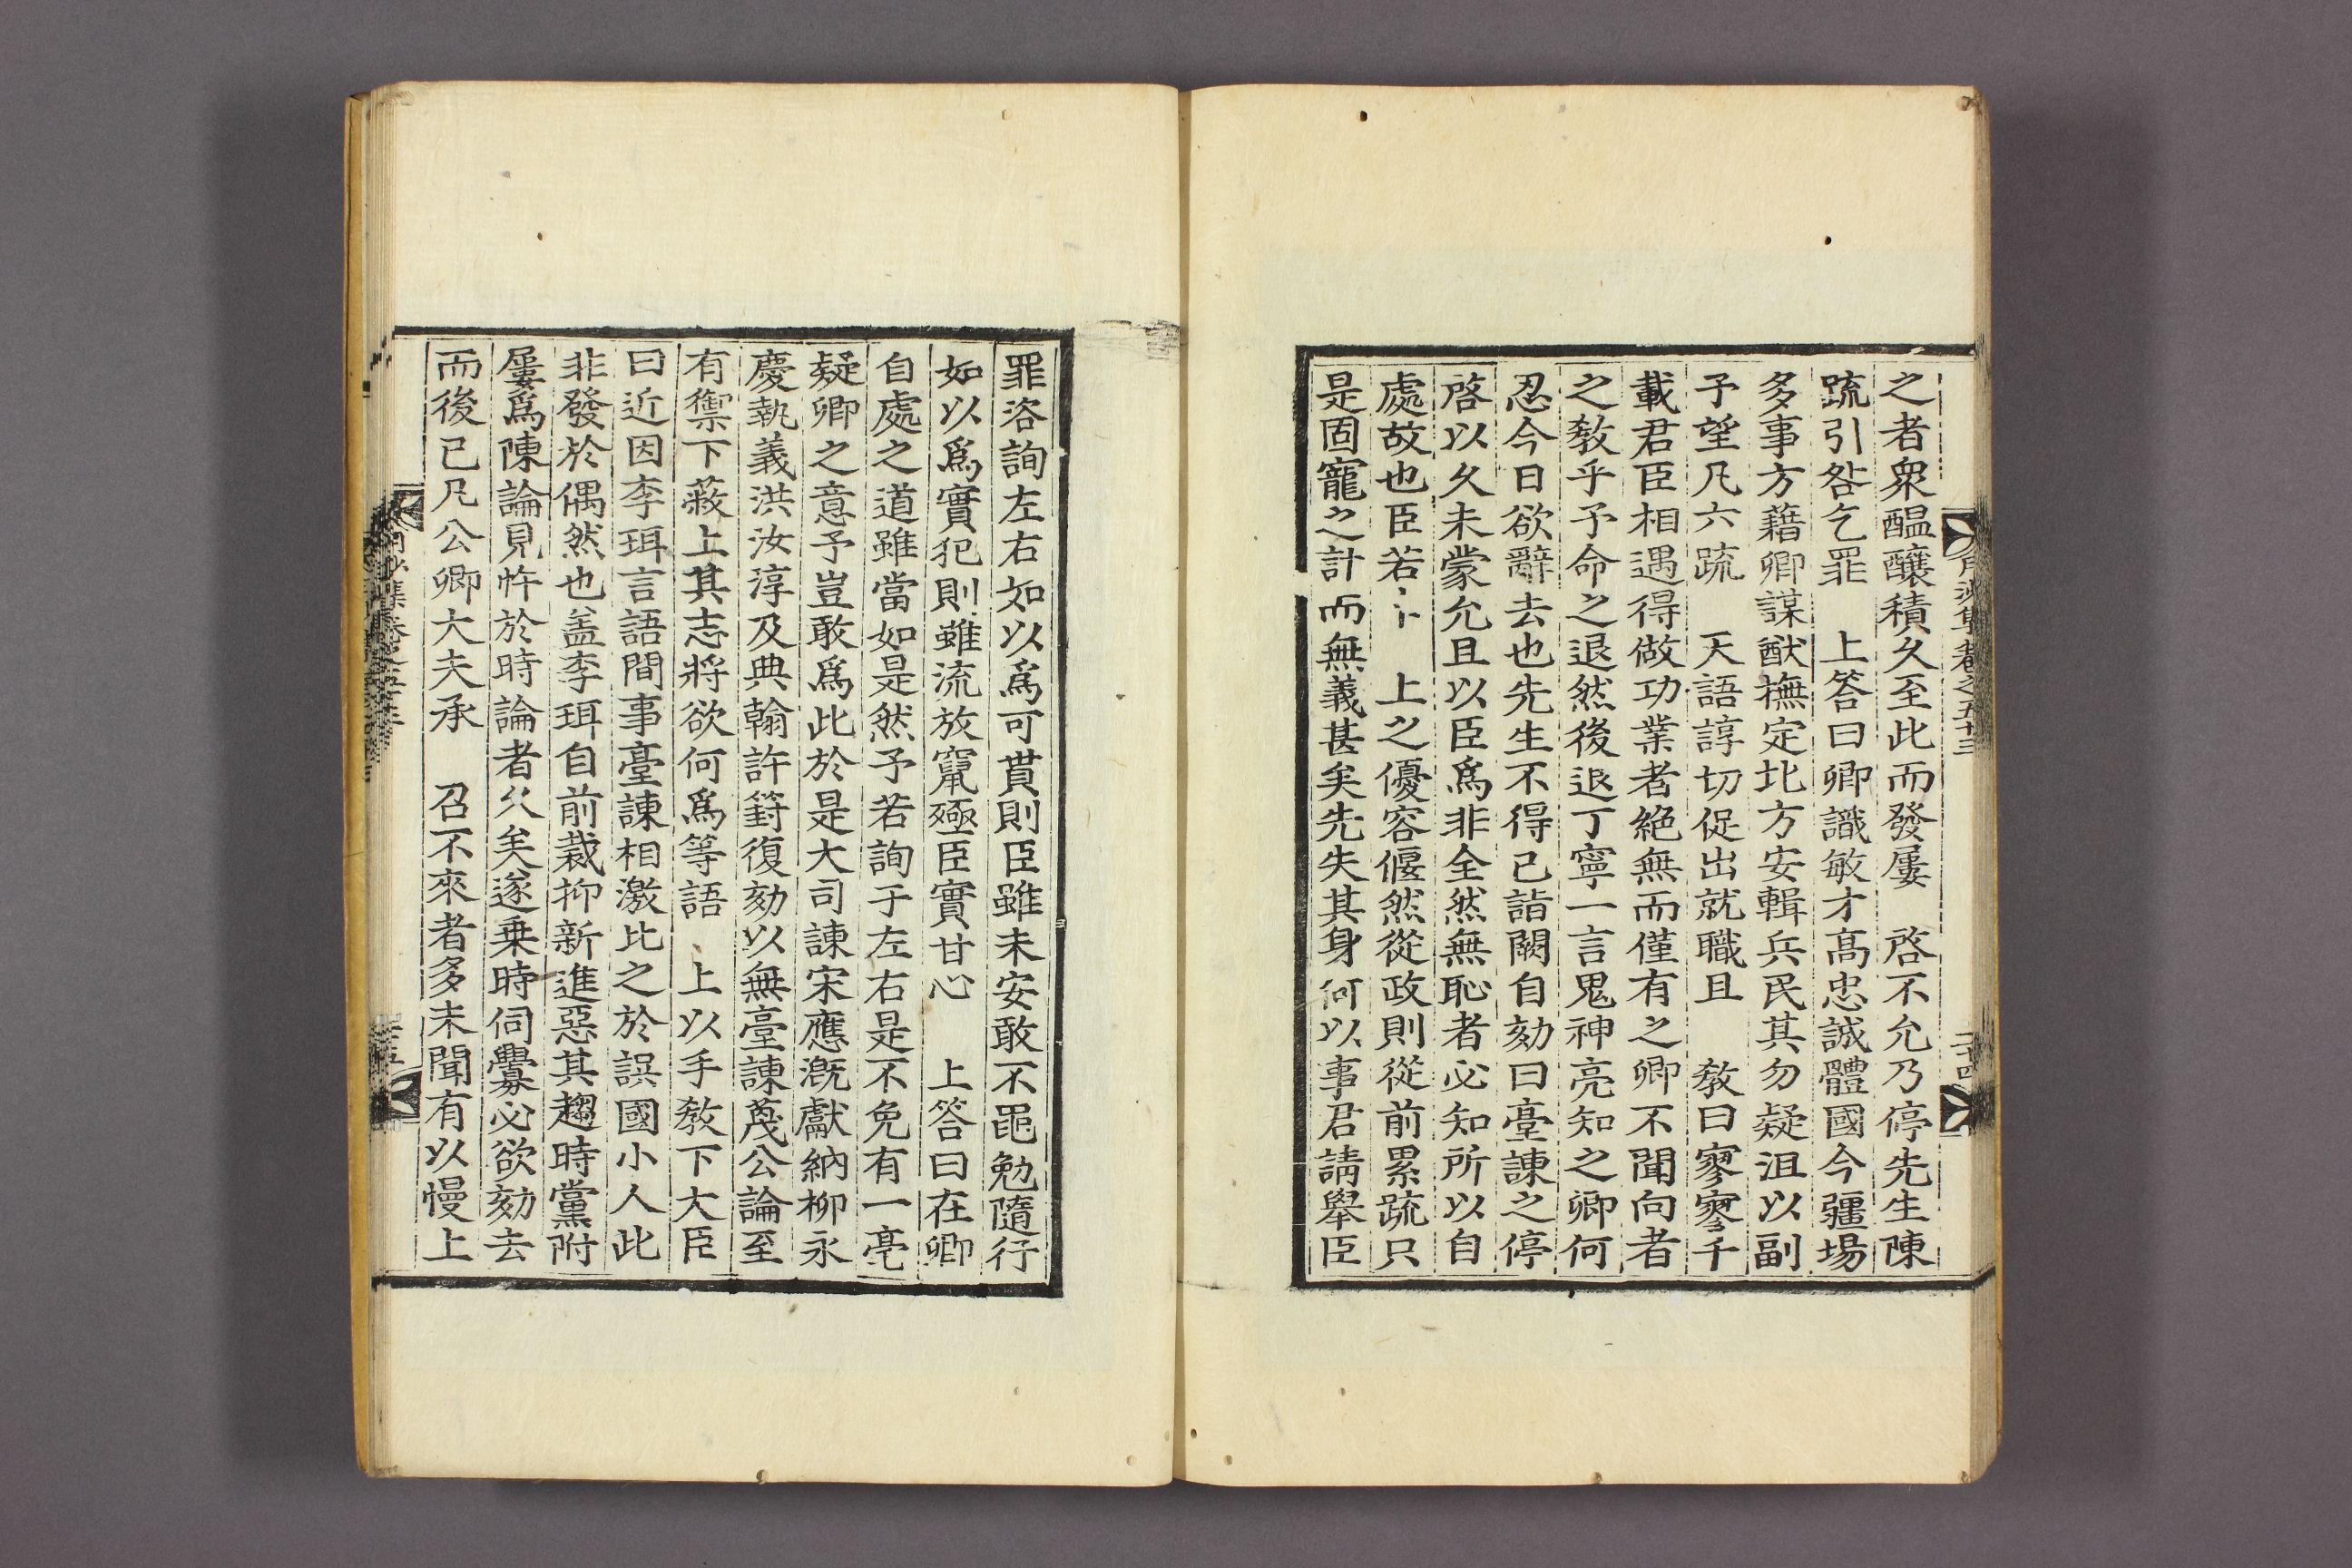 之者衆醞釀積久至此而發屢　啓不允乃停先生陳
疏引咎乞罪　上答曰卿識敏才高忠誠體國今疆場
多事方藉卿謀猷撫定北方安輯兵民其勿疑沮以副
予望凡六疏　天語諄切促出就職且　敎曰寥寥千
載君臣相遇得做功業者絶無而僅有之卿不聞向者
之敎乎予命之退然後退丁寧一言鬼神亮知之卿何
忍今日欲辭去也先生不得已詣闕自劾曰臺諫之停
啓以久未蒙允且以臣爲非全然無恥者必知所以自
處故也臣若〻　上之優容偃然從政則從前累疏只
是固寵之計而無義甚矣先失其身何以事君請擧臣
罪咨詢左右如以爲可貰則臣雖未安敢不黽勉隨行
如以爲實犯則雖流放竄殛臣實甘心　上答曰在卿
自處之道雖當如是然予若詢于左右是不免有一毫
疑卿之意予豈敢爲此於是大司諫宋應漑獻納柳永
慶執義洪汝淳及典翰許篈復劾以無臺諫蔑公論至
有禦下蔽上其志將欲何爲等語　上以手敎下大臣
曰近因李珥言語間事臺諫相激比之於誤國小人此
非發於偶然也盖李珥自前裁抑新進惡其趨時黨附
屢爲陳論見忤於時論者久矣遂乗時伺釁必欲劾去
而後已凡公卿大夫承　召不來者多未聞有以慢上
月沙集卷之五十三
二十四